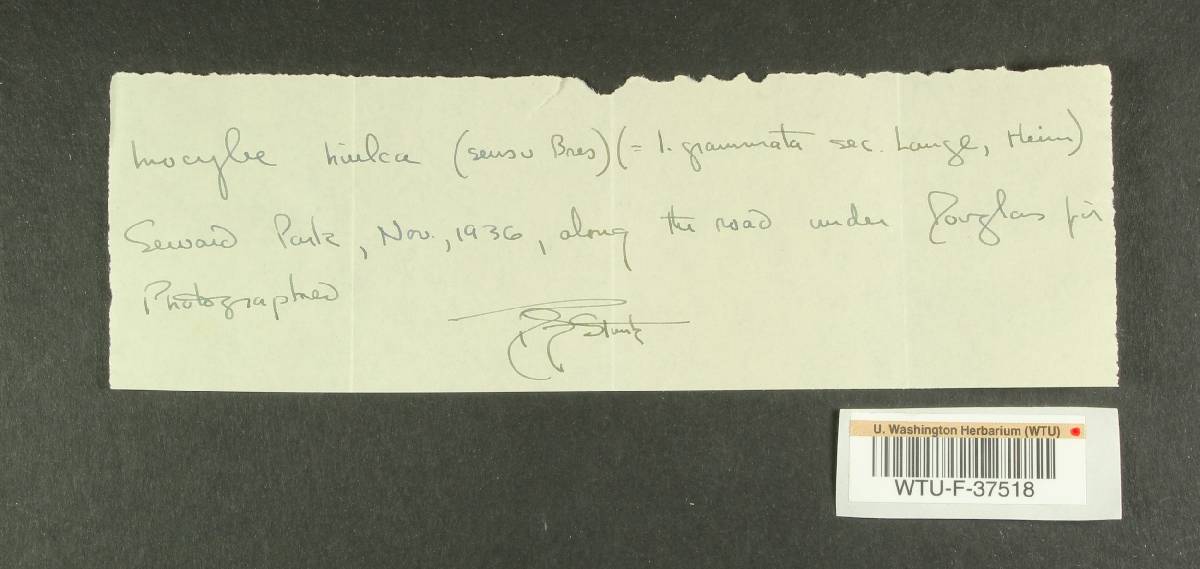 Inocybe hiulca (sensu Bres) (= I. grammata sec. Lange, Heim)
Seward Park, Nov., 1936, along the road under Douglas fir
Photographed
Stuntz
U. Washington Herbarium (WTU)
WTU-F-37518